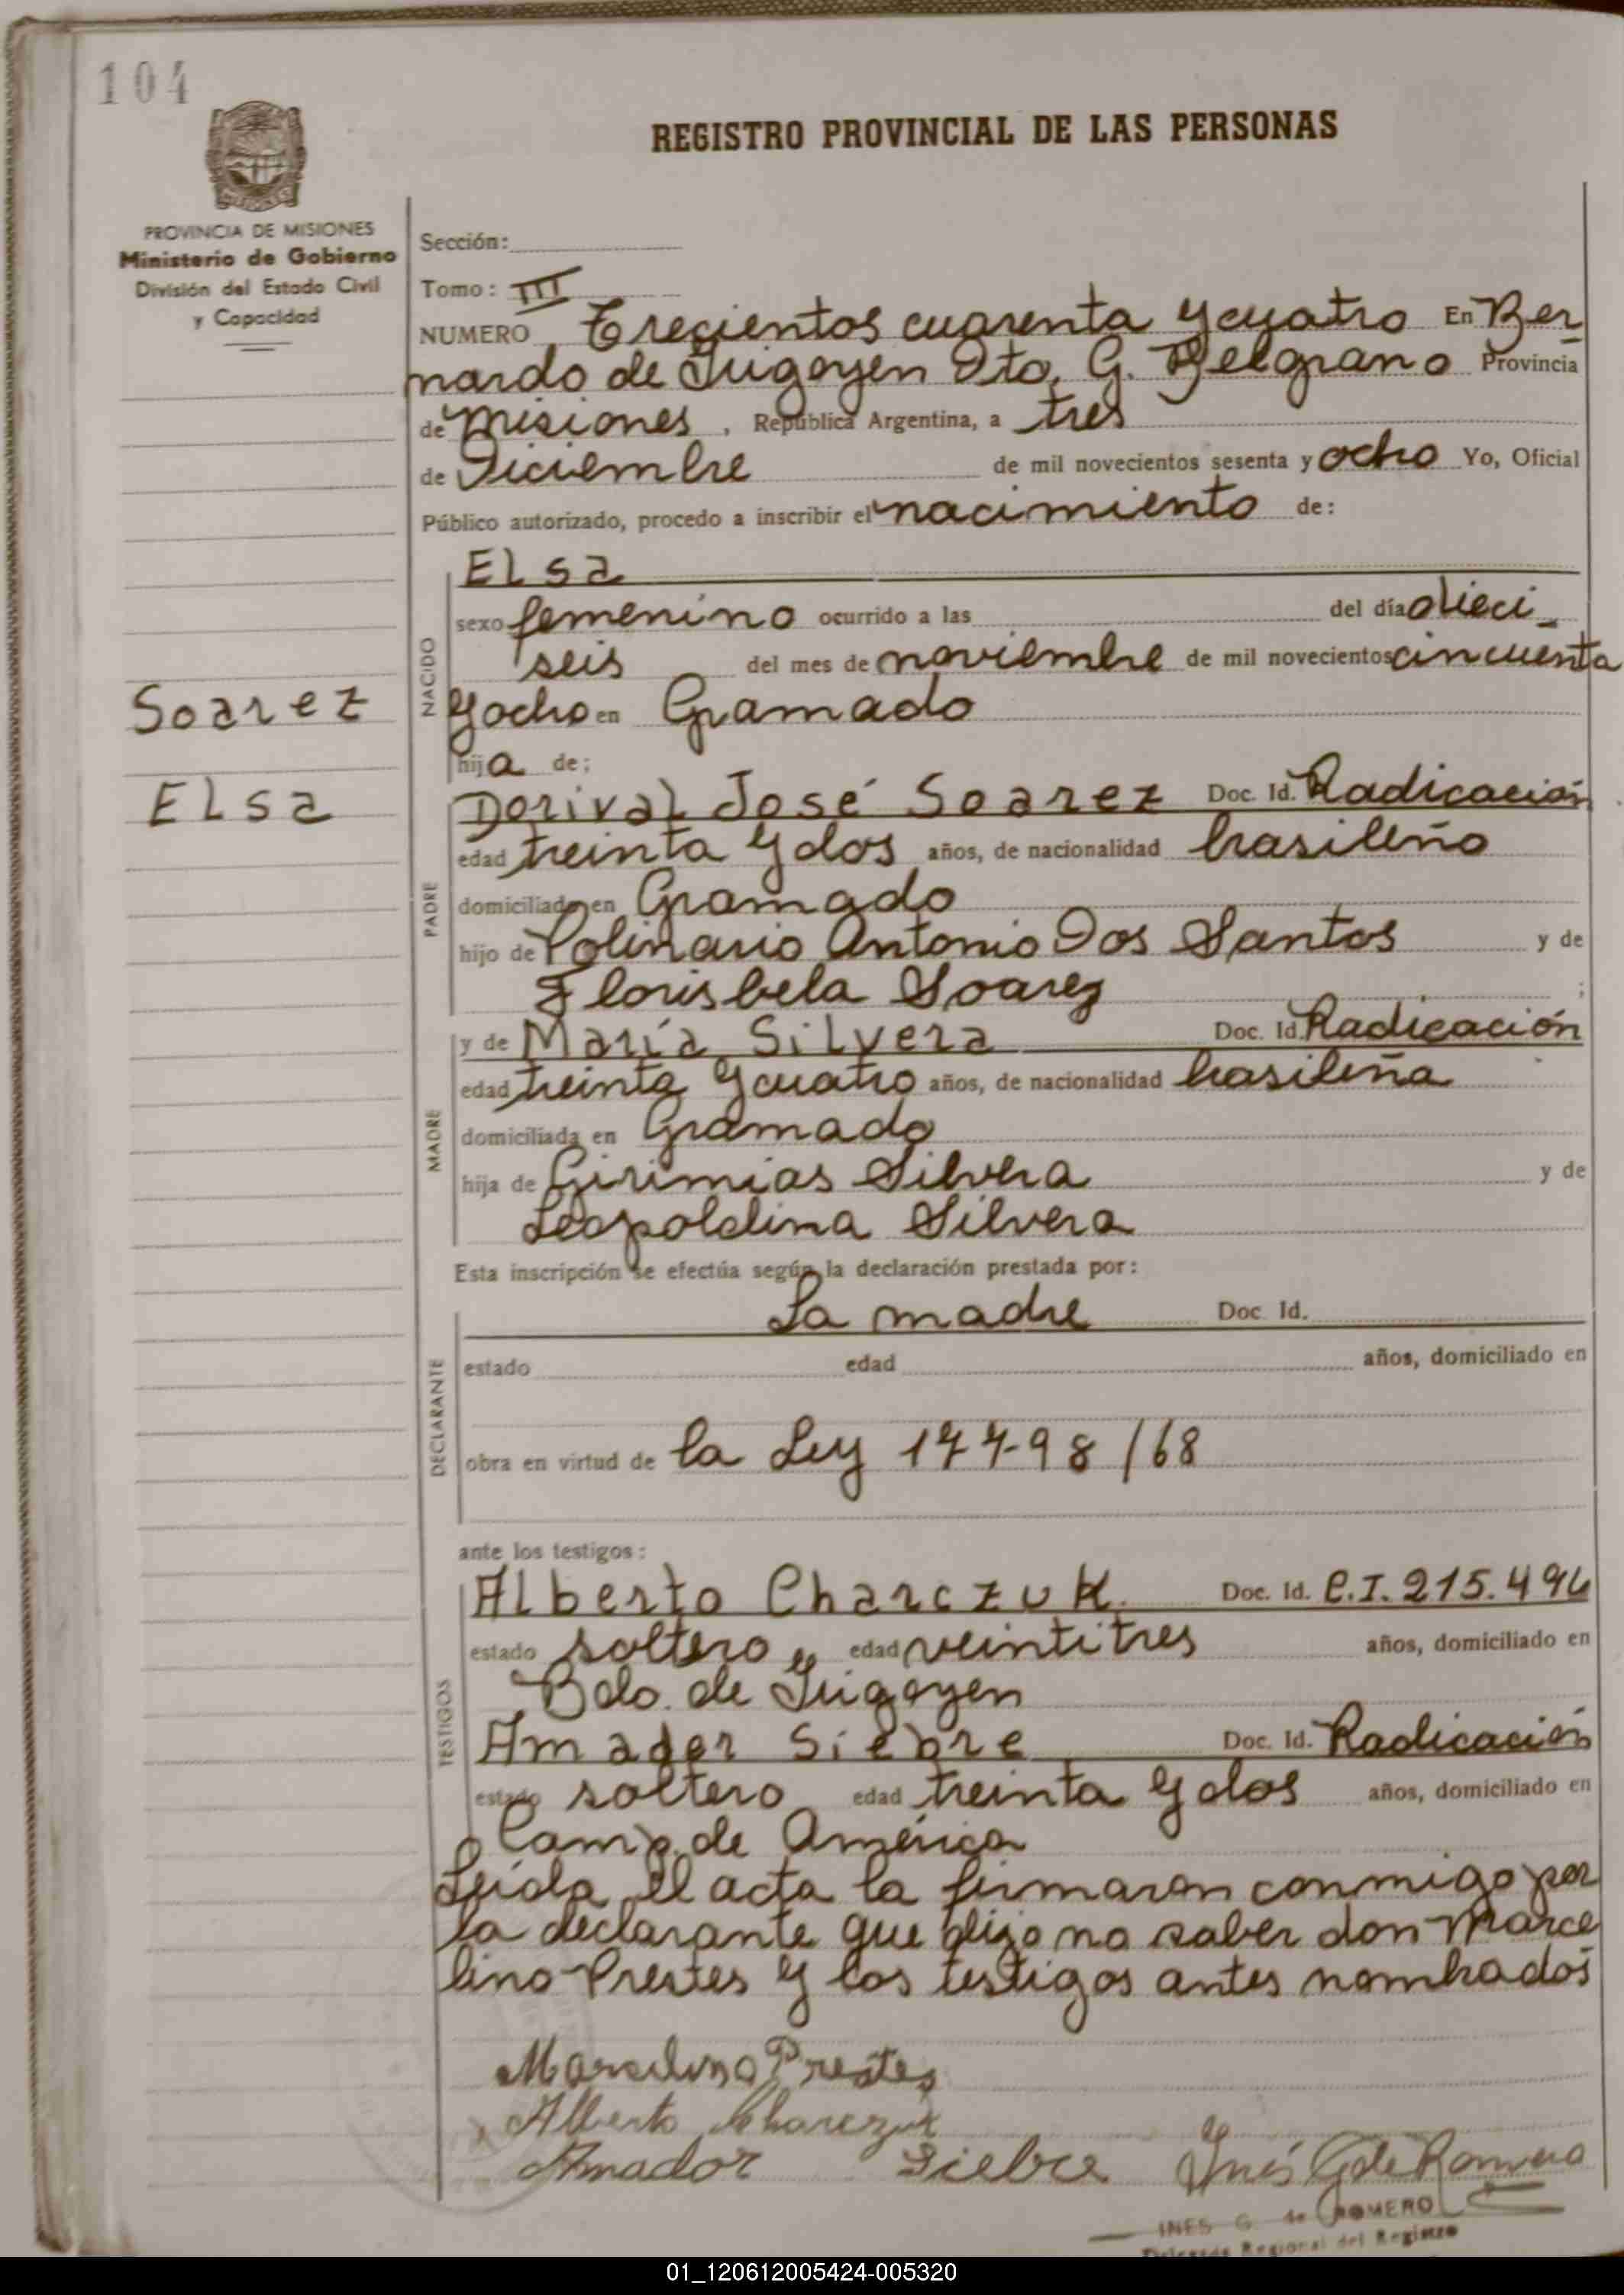 104
REGISTRO PROVINCIAL DE LAS PERSONAS
PROVINCIA DE MISIONES
Ministerio de Gobierno
División del Estado Civil
y Capacidad
Sección:
Tomo: III
NUMERO Trecientos cuarenta y cuatro En Ber
nardo de Irigoyen Dto. G. Belgrano Provincia
de Misiones, República Argentina, a tres
de Diciembre de mil novecientos sesenta y ocho Yo, Oficial
Público autorizado, procedo a inscribir el nacimiento de:
NACIDO
Elsa
sexo femenino ocurrido a las del día dieci_
seis del mes de noviembre de mil novecientos cincuenta
y ocho en Gramado
hija de;
Soarez
Elsa
PADRE
Dorival José Soarez Doc. Id. Radicación
edad treinta y dos años, de nacionalidad brasileño
domiciliado en Gramado
hijo de Polinario Antonio Dos Santos y de
Florisbela Soarez ;
MADRE
y de María Silvera Doc. Id. Radicación
edad treinta y cuatro años, de nacionalidad brasileña
domiciliada en Gramado
hija de Girimias Silvera y de
Leopoldina Silvera
Esta inscripción se efectúa según la declaración prestada por:
DECLARANTE
La madre Doc. Id.
estado edad años, domiciliado en
obra en virtud de la Ley 17798/68
ante los testigos:
TESTIGOS
Alberto Charczuk. Doc. Id. C.I. 215.496
estado soltero edad veintitres años, domiciliado en
Bdo. de Irigoyen
Amador Siebre Doc. Id. Radicación
estado soltero edad treinta y dos años, domiciliado en
Camp. de América
Leída el acta la firmaron conmigo por
la declarante que dijo no saber don Marce
lino Prestes y los testigos antes nombrados
Marcelino Prestes
Alberto Charczuk
Amador Siebre Inés G de Romero
INES G. de ROMERO
Delegada Regional del Registro
01_120612005424-005320